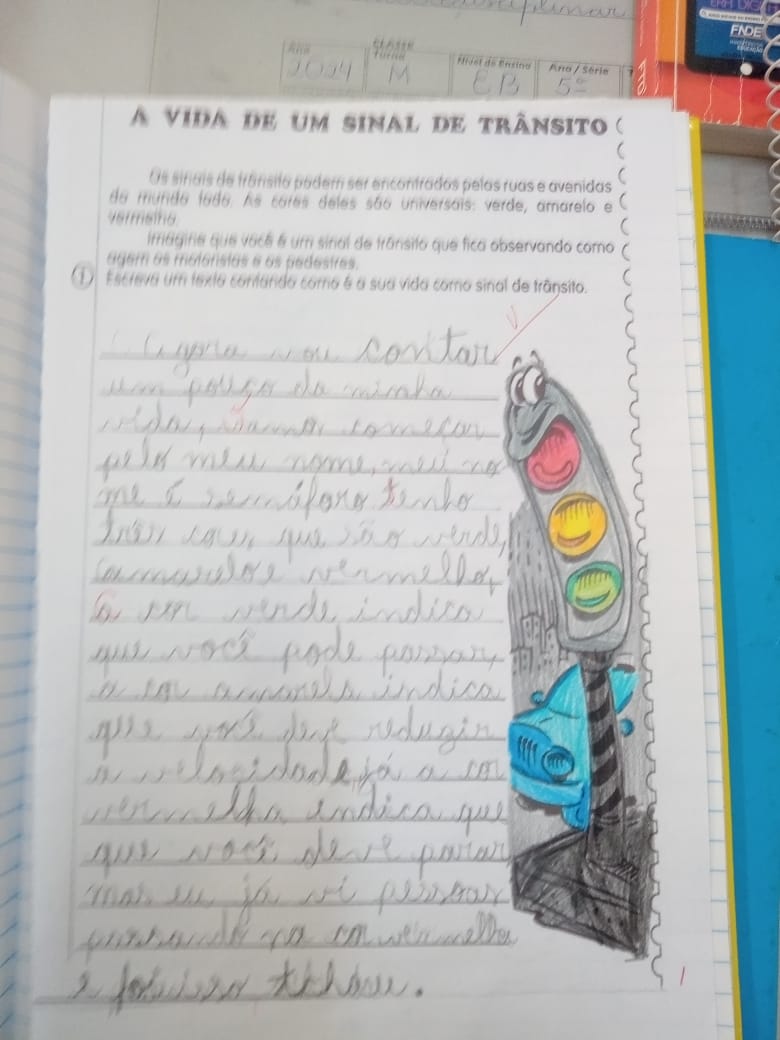 disciplinar
Ano
2024
CLASSE
Turno
M
Nível de Ensino
EB
Ano / Série
5º
FNDE
A VIDA DE UM SINAL DE TRÂNSITO
Os sinais de trânsito podem ser encontrados pelas ruas e avenidas
do mundo todo. As cores deles são universais: verde, amarelo e
vermelho.
Imagine que você é um sinal de trânsito que fica observando como
agem os motoristas e os pedestres.
1 Escreva um texto contando como é a sua vida como sinal de trânsito.
Agora vou contar
um pouco da minha
vida, vamos começar
pelo meu nome, meu no
me é semáforo tenho
três cores que são verde,
amarelo e vermelho,
a cor verde indica
que você pode passar,
a cor amarela indica
que você deve reduzir
a velocidade, já a cor
vermelha indica que
que você deve parar
mas eu já vi pessoas
passando na cor vermelha
e foi isso tchau.